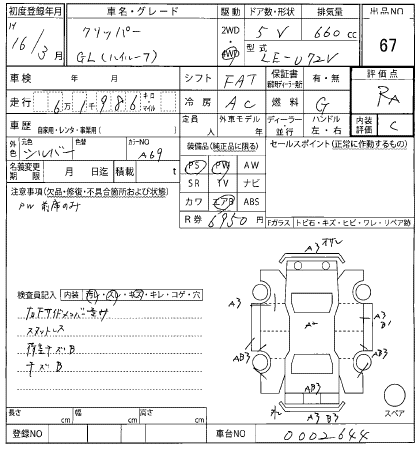 初度登録年月 車名・グレード 駆動 ドア数・形状 排気量 出品NO
H 16/3月 クリッパー 2WD 5 V 660cc 67
GL(ハイルーフ) 4WD 型式 LE-U72V
車検 年 月 シフト FAT 保証書 有・無 評価点
走行 6万1千986 キロ・マイル 冷房 AC 燃料 G RA
車歴 自家用・レンタ・事業用( ) 定員 人 外車モデル 年 ディーラー・並行 ハンドル 左・右 内装評価 C
外色 元色 シルバー カラーNO A69 装備品(純正品に限る) セールスポイント(正常に作動するもの)
名義変更 月 日迄 積載 t PS PW AW
注意事項(欠品・修復・不具合箇所および状態) SR TV ナビ
PW 前席のみ カワ エアB ABS
R券 6950円 Fガラス トビ石・キズ・ヒビ・ワレ・リペア跡
検査員記入 内装 汚レ・スレ・キズ・キレ・コゲ・穴
スタットレス
キズB
A3
A3
A3 B1
A2
AB3 AB3
AB3
A3 B3
スペア
長さ cm 幅 cm 高さ cm
登録NO 車台NO 0002644